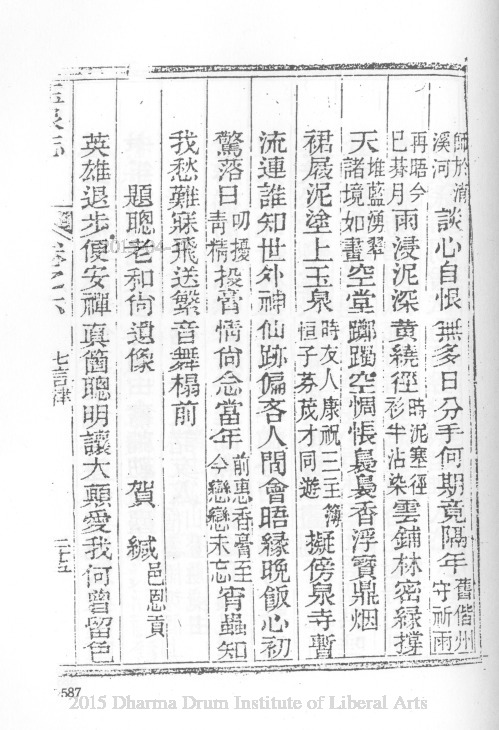 師於淯溪河談心自恨無多日分手何期竟隔年舊偕州守祈雨
再晤今已朞月雨浸泥深黃繞徑時泥塞徑衫半沾染雲鋪林密緑撐
天堆藍湧翠諸境如畫空堂躑躅空惆悵裊裊香浮寶鼎烟
裙屐泥塗上玉泉時友人康祝三王簿恒子芬茂才同遊擬傍泉寺暫
流連誰知世外神仙跡偏吝人間會晤緣晚飯心初
驚落日叨擾青精投膏情尚念當年前惠香膏至今戀戀未忘宵蟲知
我愁難寐飛送繁音舞榻前
題聰老和尙遺像 賀緘邑恩貢
英雄退步便安禪眞箇聰明讓大顚愛我何曾留色
玉泉志 卷之六 七言律 三十五
587
2015 Dharma Drum Institute of Liberal Arts